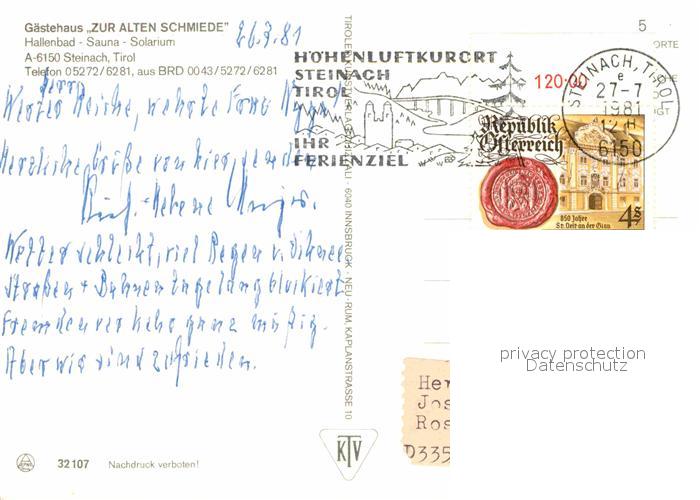 Gästehaus „ZUR ALTEN SCHMIEDE"
Hallenbad - Sauna - Solarium
A-6150 Steinach, Tirol
Telefon 05272/6281, aus BRD 0043/5272/6281
26.7.81
Herr
Herzliche Grüße von hier, senden
Wetter schlecht, viel Regen u. Schnee
Straßen + Bahnen tagelang blockiert
Fremdenverkehr ganz mäßig.
Aber wir sind zufrieden.
32107 Nachdruck verboten!
TIROLER KUNSTVERLAG
6040 INNSBRUCK - NEU-RUM, KAPLANSTRASSE 10
KTV
HÖHENLUFTKURORT
STEINACH
TIROL
IHR
FERIENZIEL
5
ORTE
120·00
STEINACH, TIROL
e
27-7
1981
12-8
6150
Republik
Österreich
850 Jahre
St. Veit an der Glan
4 S
privacy protection
Datenschutz
Her
Jos
Ros
D335